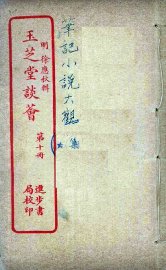 筆記小說大觀
集
明 徐應秋輯
玉芝堂談薈
第十册
進步書
局校印